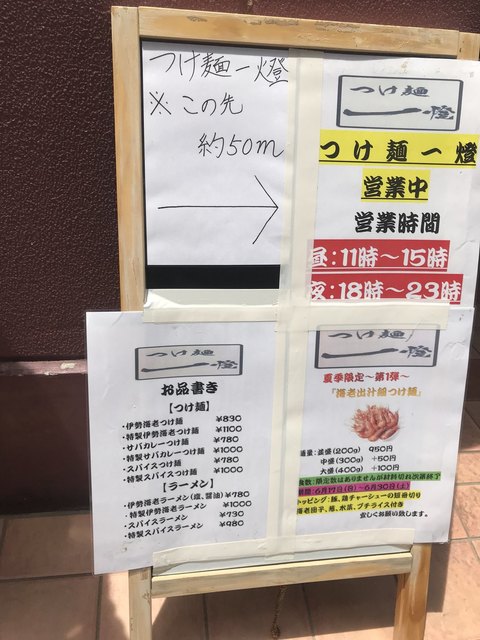 つけ麺一燈
※この先
約50m
つけ麺
一燈
つけ麺一燈
営業中
営業時間
昼:11時〜15時
夜:18時〜23時
つけ麺
一燈
お品書き
【つけ麺】
・伊勢海老つけ麺 ¥830
・特製伊勢海老つけ麺 ¥1100
・サバカレーつけ麺 ¥780
・特製サバカレーつけ麺 ¥1000
・スパイスつけ麺 ¥780
・特製スパイスつけ麺 ¥1000
【ラーメン】
・伊勢海老ラーメン(塩、醤油) ¥780
・特製伊勢海老ラーメン ¥1000
・スパイスラーメン ¥730
・特製スパイスラーメン ¥980
つけ麺
一燈
夏季限定〜第1弾〜
「海老出汁細つけ麺」
麺量:並盛(200g) 950円
中盛(300g) +50円
大盛(400g) +100円
食数:限定数はありませんが材料切れ次第終了
期間:6月17日(日)〜6月30日(土)
トッピング:豚、鶏チャーシューの短冊切り
海老団子、葱、水菜、プチライス付き
宜しくお願い致します。